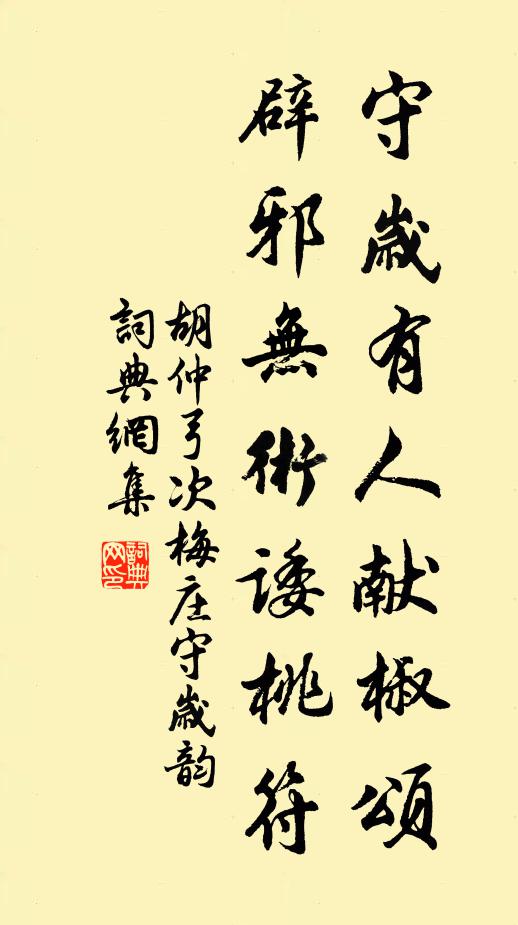 守歲有人献椒頌
辟邪無術诿桃符
胡仲弓次梅庄守歲韵
詞典網集
詞典网印